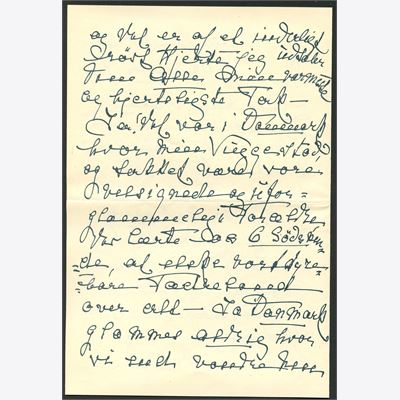 og Vel er af et inderligt
rørt Hjerte jeg udtaler
min varmeste
og hjerteligste Tak –
Ja! Vel var i Danmark
hvor min Vugge stod,
og takket være vore
velsignede og ufor=
glemmelige Forældre
Vi lærte saa
=de, at elske vort dyre=
=bare Fædreland
over alt – Ja Danmark
glemmes aldrig hvor
vi end vandre hen